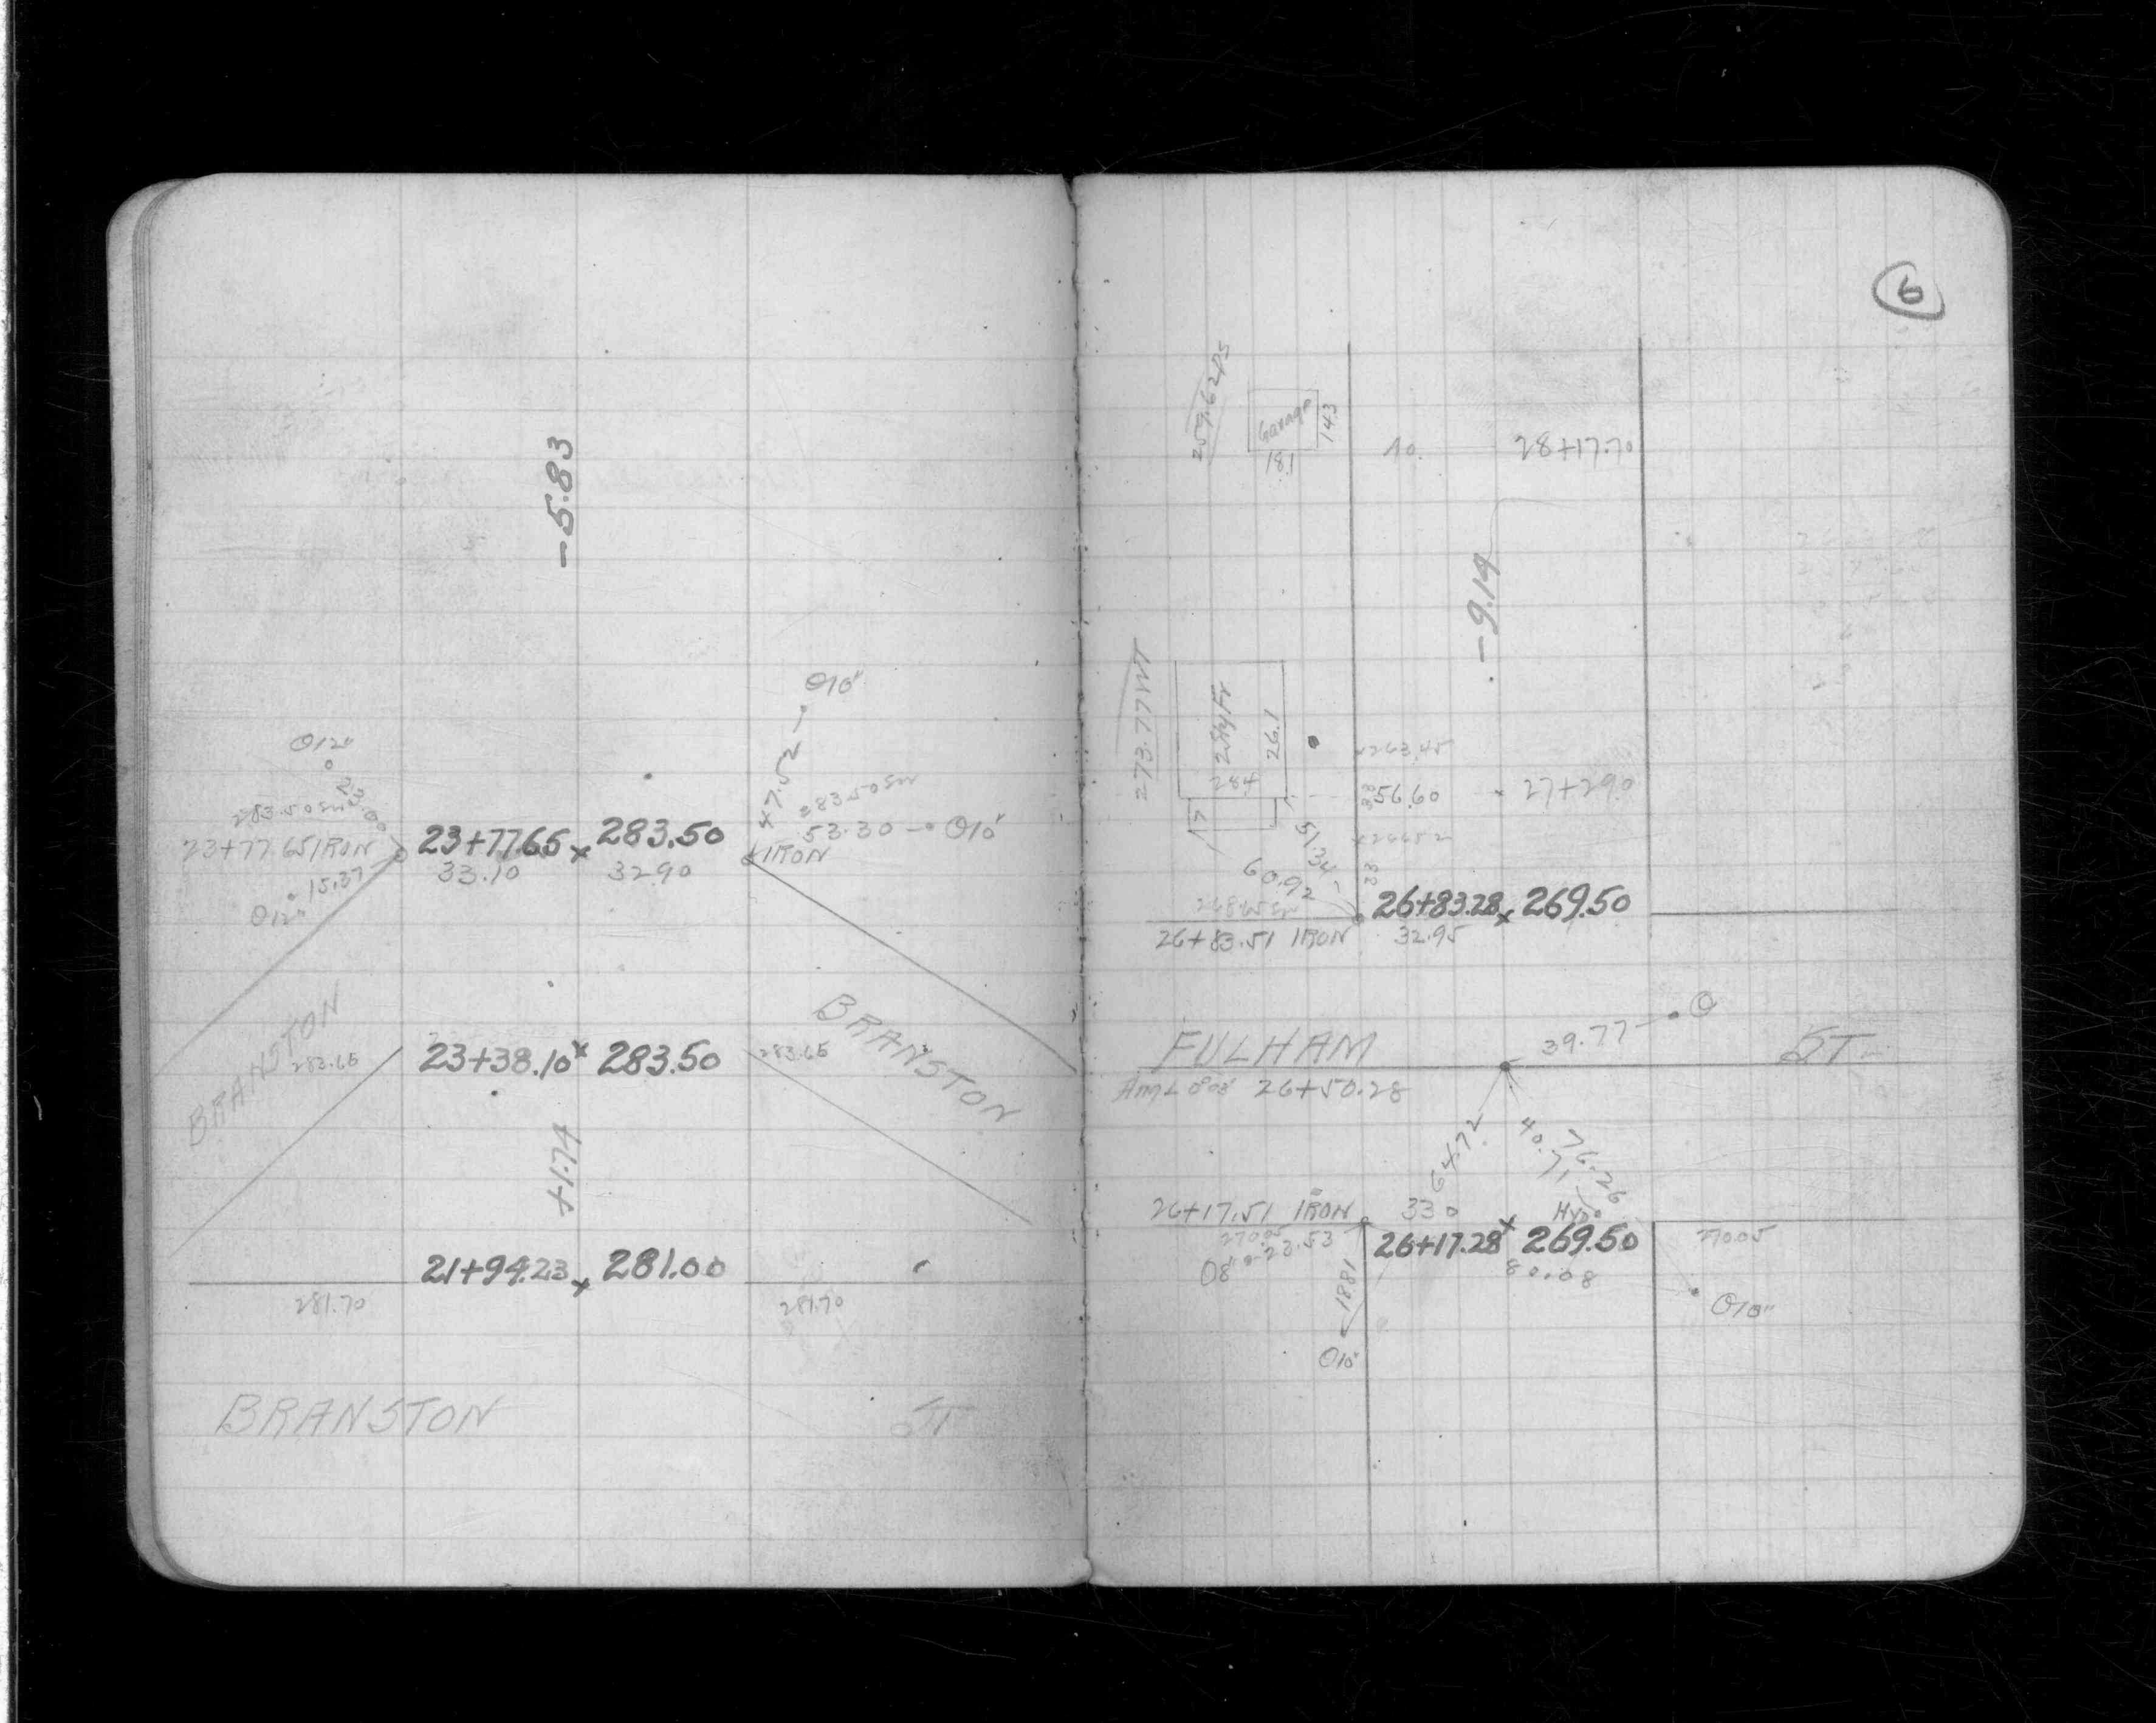 -5.83
O10"
47.52
O12"
23.00
283.50
283.50
23+77.65 IRON
23+77.65 x 283.50
IRON
53.30 O10"
33.10
32.90
15.37
O12"
BRANSTON
283.65
23+38.10 x 283.50
283.65
BRANSTON
+1.74
21+94.23 x 281.00
281.70
281.70
BRANSTON ST
6
Garage
14.3
18.1
10.
28+17.70
-9.14
273.77 WT
2 Sty Fr
26.1
28.4
x263.45
56.60
27+29.0
51.34
60.92
88
26+83.28 x 269.50
26+83.51 IRON
32.95
FULHAM ST
39.77
26+50.28
64.72
40.71
76.26
26+17.51 IRON
33.0
HYD
270.05
23.53
26+17.28 x 269.50
270.05
O8
18.81
80.08
O10"
O10"